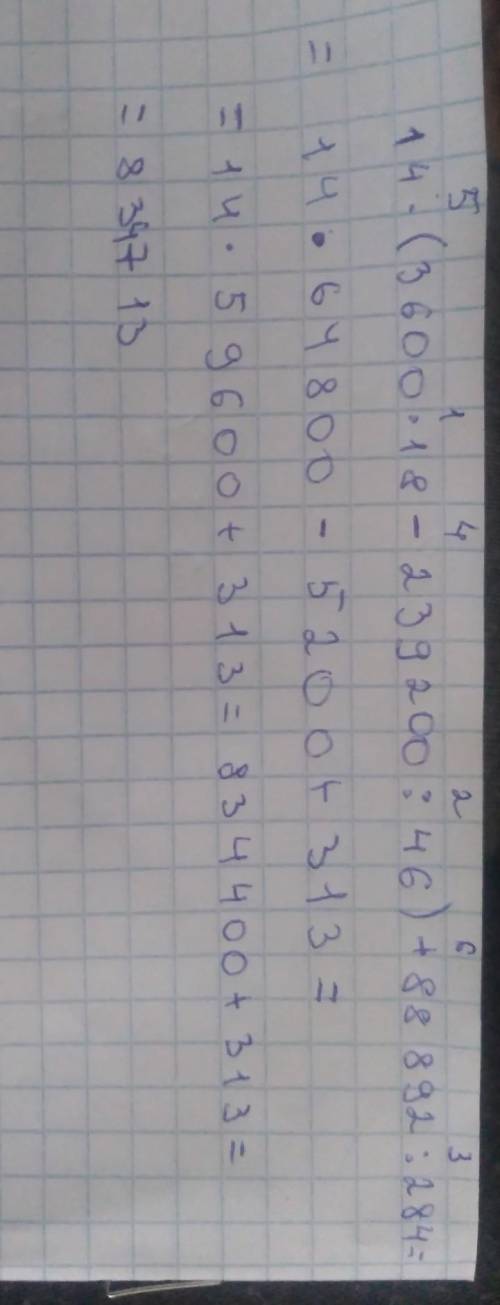 5 1 4 2 6 3
14 · (3600 · 18 - 239200 : 46) + 88 892 : 284 =
= 14 · 64800 - 5200 + 313 =
= 14 · 59600 + 313 = 834400 + 313 =
= 834713